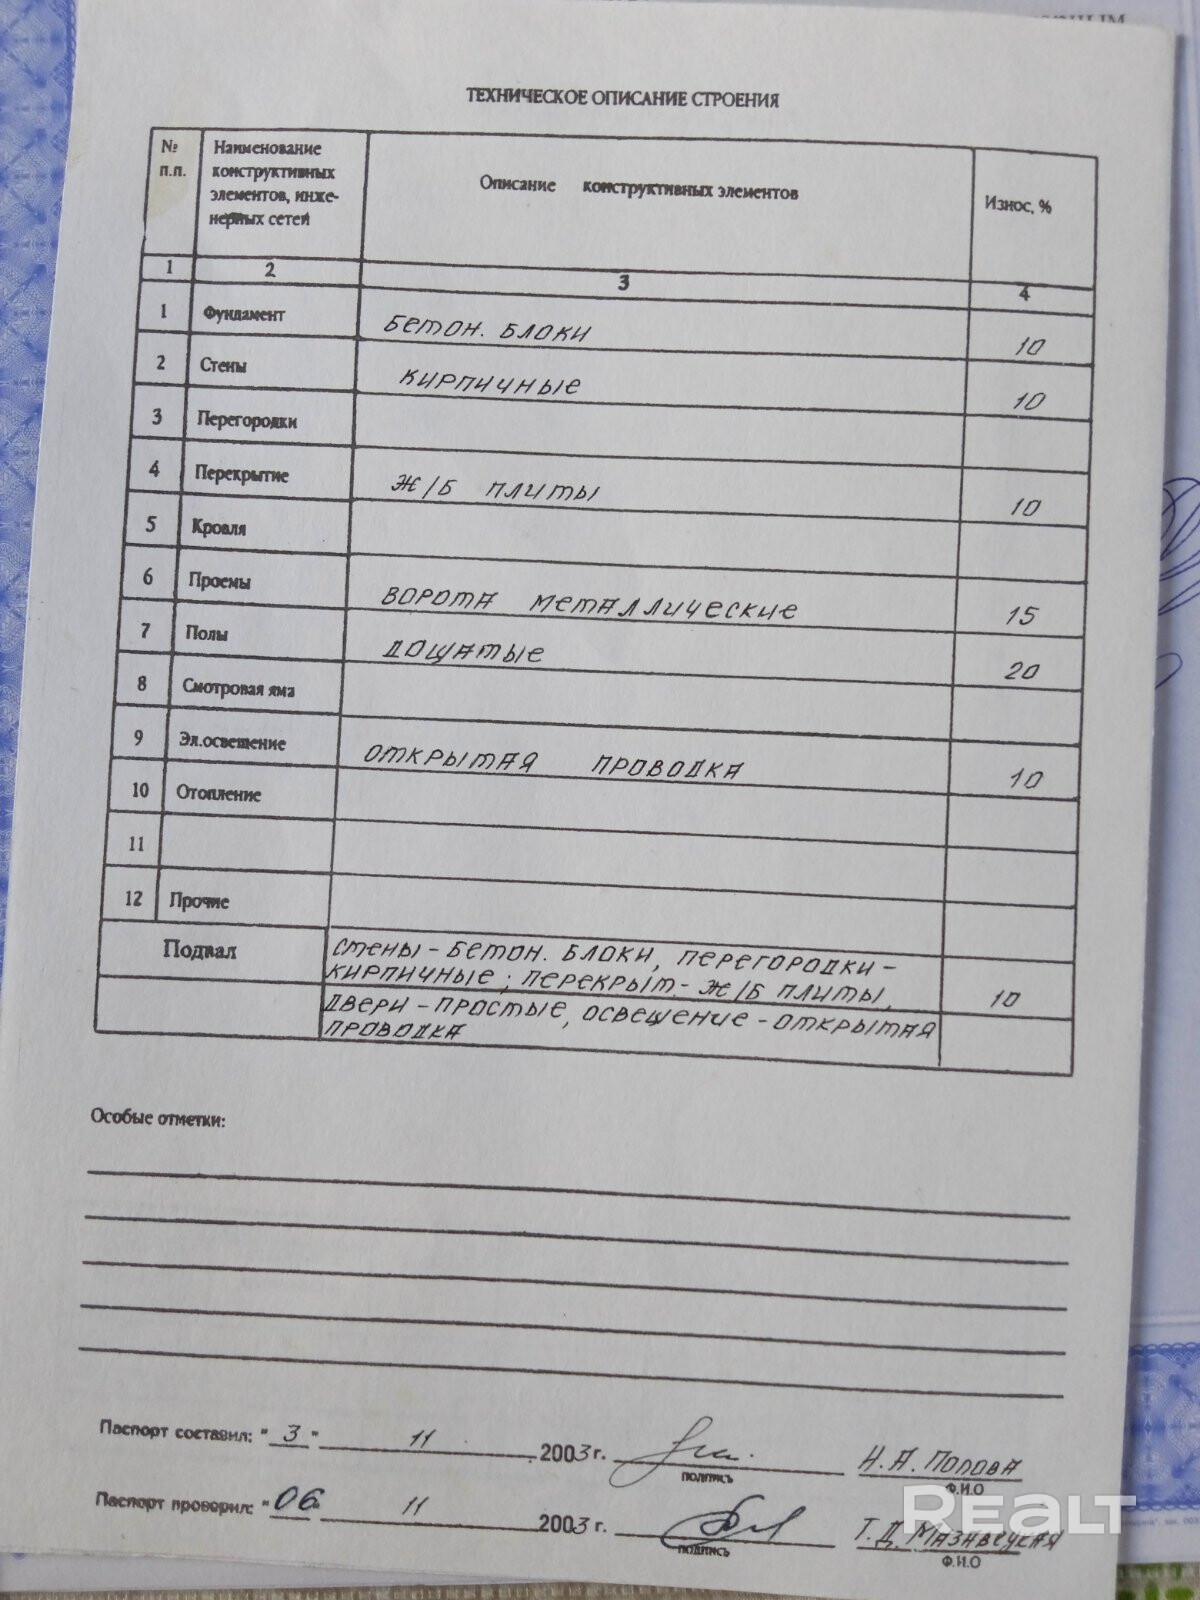 ТЕХНИЧЕСКОЕ ОПИСАНИЕ СТРОЕНИЯ
№ п.п.
Наименование
конструктивных
элементов, инже-
нерных сетей
Описание конструктивных элементов
Износ, %
1 2 3 4
1 Фундамент БЕТОН. БЛОКИ 10
2 Стены КИРПИЧНЫЕ 10
3 Перегородки
4 Перекрытие Ж/Б ПЛИТЫ 10
5 Кровля
6 Проемы ВОРОТА МЕТАЛЛИЧЕСКИЕ 15
7 Полы ДОЩАТЫЕ 20
8 Смотровая яма
9 Эл.освещение ОТКРЫТАЯ ПРОВОДКА 10
10 Отопление
11
12 Прочие
Подвал СТЕНЫ - БЕТОН. БЛОКИ, ПЕРЕГОРОДКИ -
КИРПИЧНЫЕ; ПЕРЕКРЫТ.- Ж/Б ПЛИТЫ, 10
ДВЕРИ - ПРОСТЫЕ, ОСВЕЩЕНИЕ - ОТКРЫТАЯ
ПРОВОДКА
Особые отметки:
Паспорт составил: " 3 " 11 2003 г. Н.А. ПОПОВА
подпись Ф.И.О
Паспорт проверил: " 06 11 2003 г. Т.Д.
подпись Ф.И.О
REALT